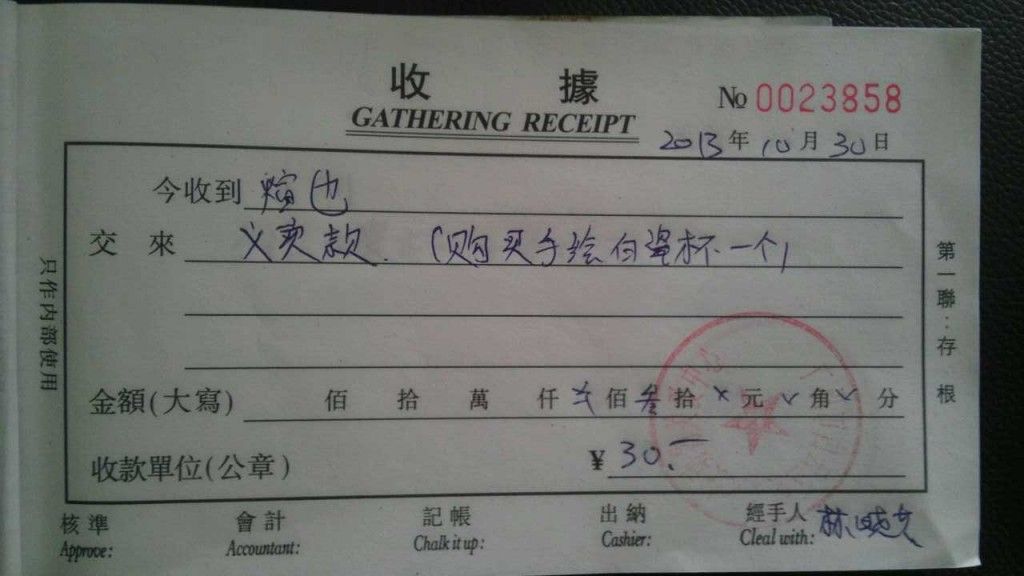 收 據
GATHERING RECEIPT
No 0023858
2013年10月30日
今收到
交來 义卖款. (购买手绘白瓷杯一个)
金額(大寫) 佰 拾 萬 仟 佰叁拾 元 角 分
收款單位(公章) ¥ 30.—
核準 會計 記帳 出納 經手人 林
Approve: Accountant: Chalk it up: Cashier: Cleal with:
只作内部使用
第一聯:存根